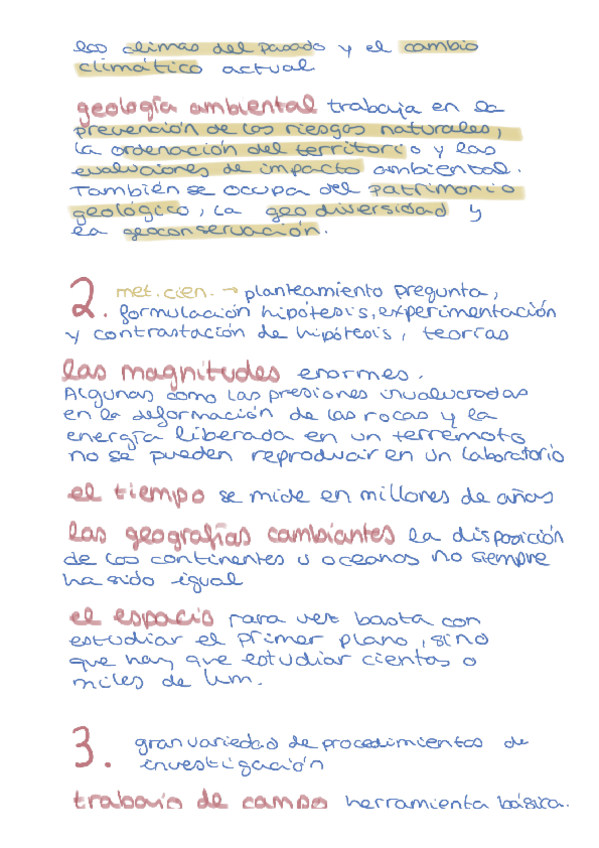 los climas del pasado y el cambio
climático actual
geología ambiental trabaja en la
prevención de los riesgos naturales,
la ordenación del territorio y las
evaluaciones de impacto ambiental.
También se ocupa del patrimonio
geológico, la geodiversidad y
la geoconservación.
2. met. cien. → planteamiento pregunta,
formulación hipótesis, experimentación
y contrastación de hipótesis, teorías
las magnitudes enormes.
Algunas como las presiones involucradas
en la deformación de las rocas y la
energía liberada en un terremoto
no se pueden reproducir en un laboratorio
el tiempo se mide en millones de años
las geografías cambiantes la disposición
de los continentes u oceanos no siempre
ha sido igual
el espacio rara vez basta con
estudiar el primer plano, sino
que hay que estudiar cientos o
miles de km.
3. gran variedad de procedimientos de
investigación
trabajo de campo herramienta básica.